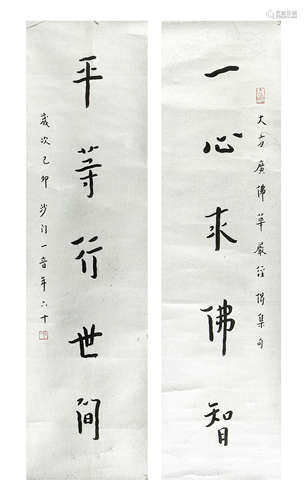 一心求佛智
大方廣佛華嚴經偈集句
平等行世間
歲次己卯沙門一音年六十